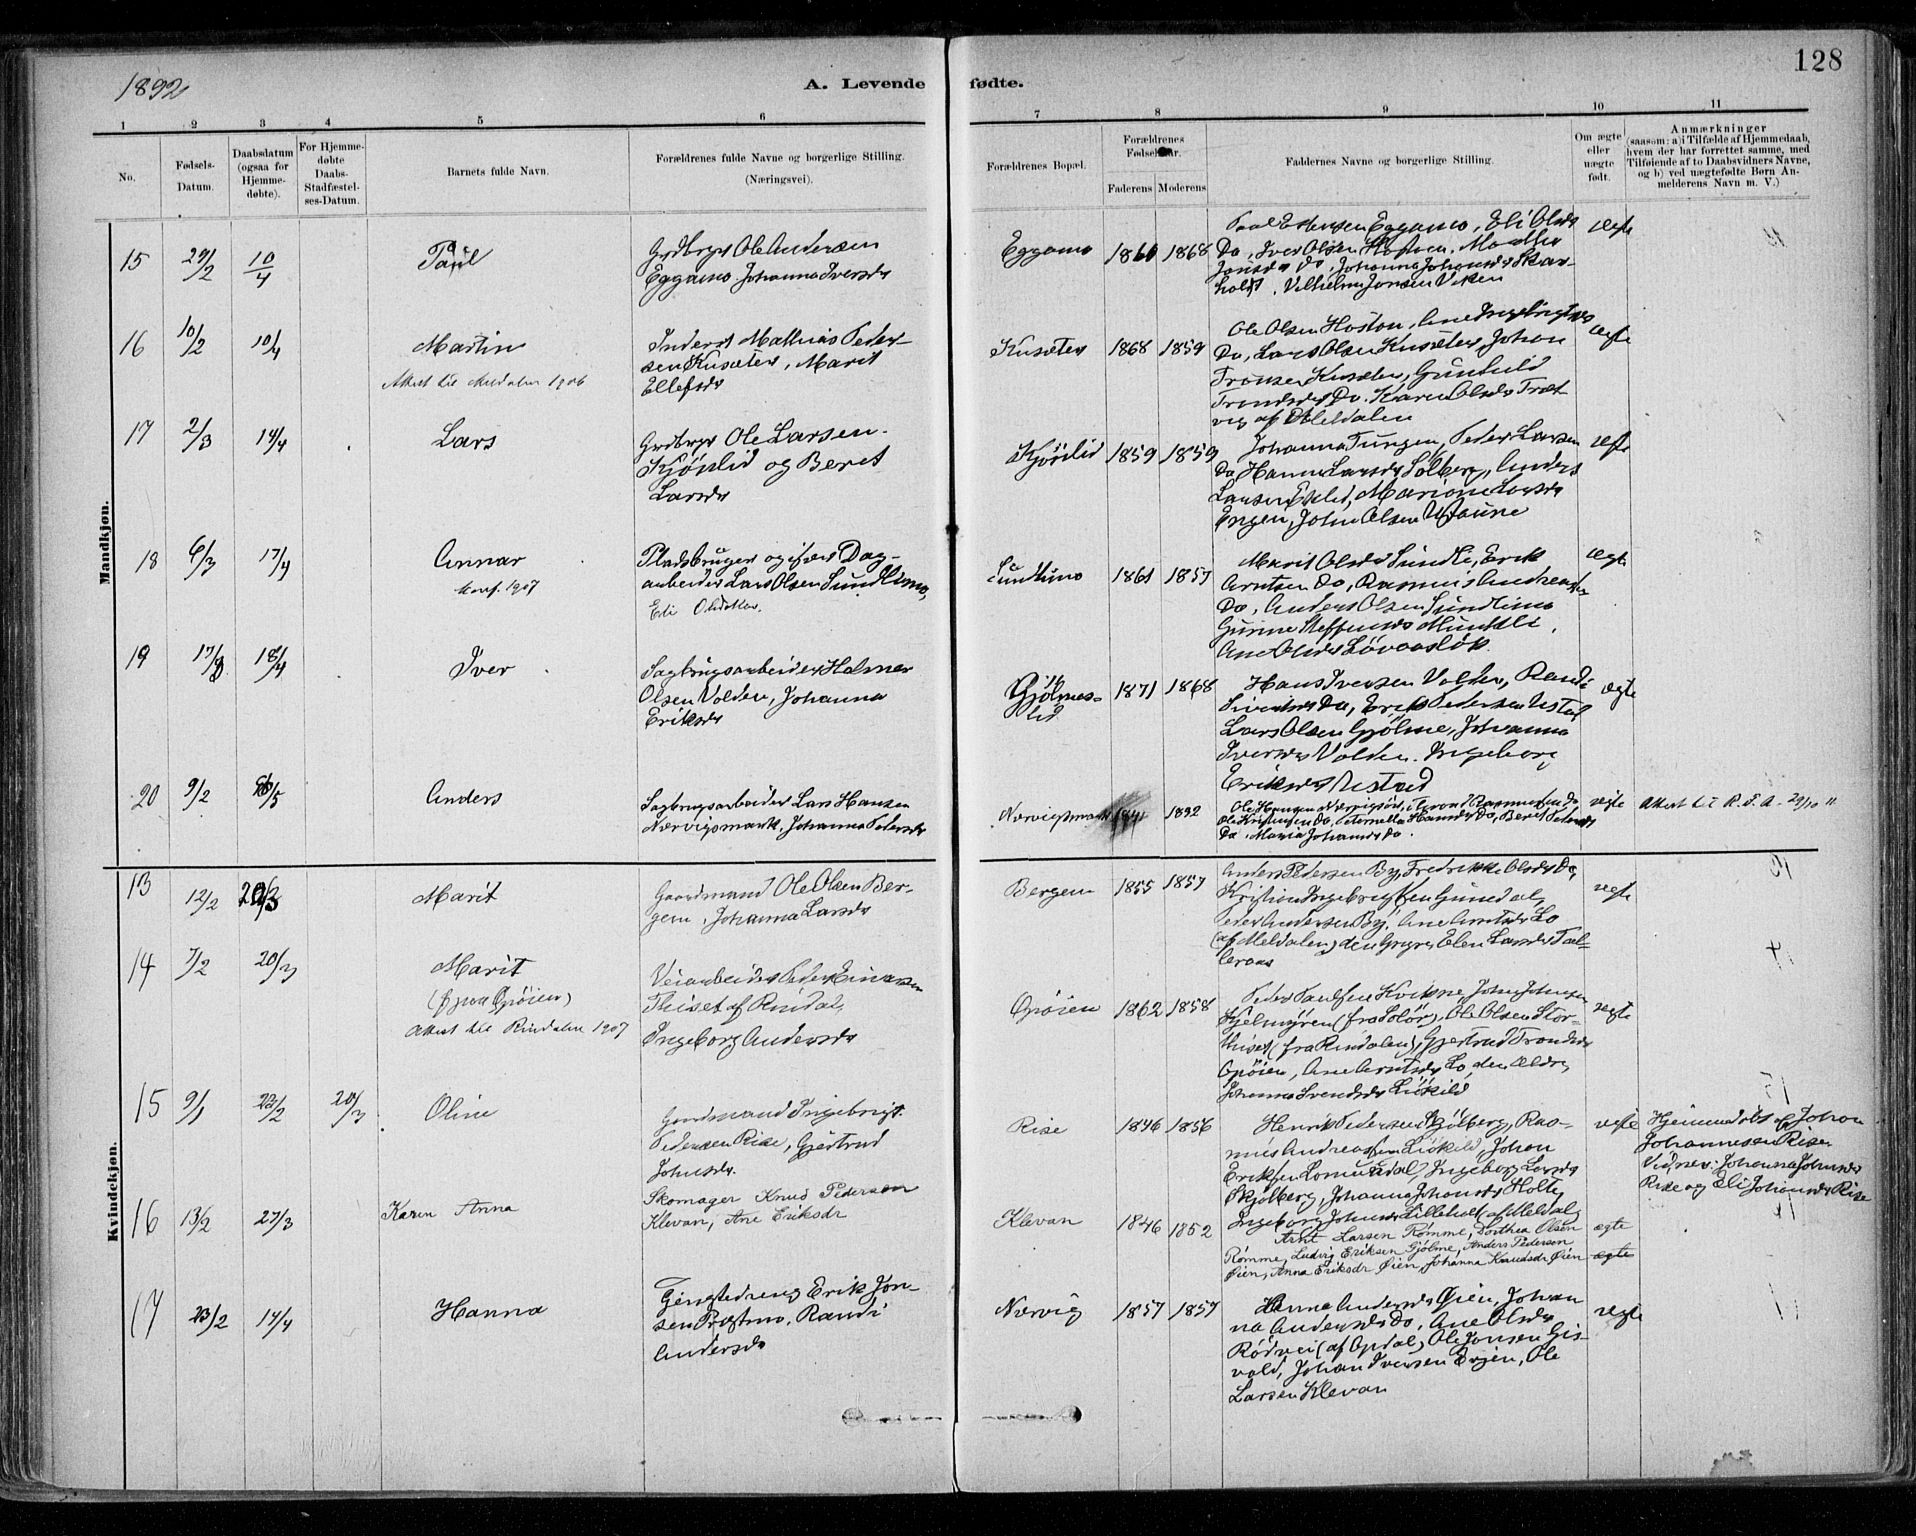 1892
A. Levende fødte.
128
1 2 3 4 5 6 7 8 9 10 11
No.
Fødsels-
Datum.
Daabsdatum
(ogsaa for
Hjemme-
døbte).
For Hjemme-
døbte
Daabs-
Stadfæstel-
ses-Datum.
Barnets fulde Navn.
Forældrenes fulde Navne og borgerlige Stilling.
(Næringsvei).
Forældrenes Bopæl.
Forældrenes
Fødselsaar.
Faderens Moderens
Faddernes Navne og borgerlige Stilling.
Om ægte
eller
uægte
født.
Anmærkninger
(saasom: a) i Tilfælde af Hjemmedaab,
hvem der har forrettet samme, med
Tilføiende af to Daabsvidners Navne,
og b) ved uægtefødte Børn An-
melderens Navn m. V.)
Mandkjøn.
15 29/2 10/4 Paul
Grdbrgr Ole Andersen
Eggamo Johanna Iversdr
Eggamo 1860 1868
Paal Estensen Eggamo, Eli Olsdr
Do, Iver Olsen Hoston, Marthe
Jonsdr Do, Johanna Johansdr Skar-
holdt. Vilhelm Jonsen Viken
ægte
16 10/2 10/4 Martin
Attest til Meldalen 1906
Inderst Mathias Peder-
sen Kusæter, Marit
Ellefsdr
Kusæter 1868 1859
Ole Olsen Hoston, Ane Ingebrigtsdr
Do, Lars Olsen Kusæter, Johan
Tronsen Kusæter, Gunhild
Trondsdr Do. Karen Olsdr Træt-
vig af Meldalen
ægte
17 2/3 14/4 Lars
Grdbrgr Ole Larsen
Kjönlid og Beret
Larsdr
Kjönlid 1859 1859
Johanna Tungen, Peder Larsen
Do, Hanna Larsdr Solberg, Anders
Larsen Evlid, Marione Larsdr
Engen, John Olsen Ustaune
ægte
18 6/3 17/4 Annar
konf. 1907
Pladsbruger og iøvr. Dag-
arbeider Lars Olsen Sundlimo,
Eli Olsdtter
Sundlimo 1861 1857
Marit Olsdr Sundli, Erik
Arntsen Do, Rasmus Andreassen
Do, Anders Olsen Sundlimo
Gurine Steffensdr Muntli,
Ane Olsdr Lövaasløk
ægte
19 17/3 18/4 Iver
Sagbrugsarbeider Halmer
Olsen Volden, Johanna
Eriksdr
Gjølmes-
lid 1871 1868
Hans Iversen Volden, Randi
Sivertsdr Do, Erik Pedersen Nestad
Lars Olsen Gjölme, Johanna
Iversdr Volden. Ingeborg
Eriksdr Nestad
ægte
20 9/2 /5 Anders
Sagbrugsarbeider Lars Hansen
Nærvigsmark, Johanna Pedersdr
Nærvigsmark 1841 1892
Ole Hansen Nærvigsör, Rasmussen Do
Ole Kristensen Do, Pernella Hansdr Do, Beret Pedersdr
Do. Maria Johansdr Do.
ægte Attest til R. S. A. 29/10 11
Kvindekjøn.
13 12/2 20/3 Marit
Gaardmand Ole Olsen Ber-
gem, Johanna Larsdr
Bergem 1855 1857
Anders Pedersen By, Fredrikke Olsdr Do,
Kristian Ingebrigtsen Gumdal,
Peder Andersen By, Ane Arntsdr Lo
(af Meldalen) den yngre, Elen Larsdr Tæl-
leraas
ægte
14 7/2 20/3 Marit
(fra Opöien)
Attest til Rindalen 1907
Veiarbeider Peder Einarsen
Thiset af Rindal,
Ingeborg Andersdr
Opöien 1862 1858
Peder Paulsen Kvikne, John Johnsen
Kjelmyren (fra Solör), Ole Olsen Stor-
thiset (fra Rindalen), Gjertrud Trondsdr
Opöien, Ane Arntsdr Lo, den Ældre,
Johanna Svendsdr Liökild
ægte
15 9/1 22/2 20/3 Oline
Gaardmand Ingebrigt
Pedersen Rise, Gjertrud
Johnsdr
Rise 1846 1856
Henrik Pedersen Skjölberg, Ras-
mus Andreassen Liökild, Johan
Eriksen Lomundal, Ingeborg Larsdr
Skjölberg, Johanna Johansdr Holte,
Ingeborg Johnsdr Lilleholt af Meldal,
ægte
Hjemmedöbt af Johan
Johannesen Rise
Vidner: Johanna Johnsdr
Rise og Eli Johansdr Rise
16 13/2 27/3 Karen Anna
Skomager Knud Pedersen
Klevan, Ane Eriksdr
Klevan 1846 1852
Arnt Larsen Rømme, Dorthea Olsen
Rømme, Ludvig Eriksen Gjölme, Anders Pedersen
Øien, Anna Eriksdr Øien, Johanna Knudsdr Øien
ægte
ægte
17 23/2 14/4 Hanna
Gengsdreng Erik Jon-
sen Præstmo, Randi
Andersdr
Nærvig 1857 1857
Hanna Andersdr Øien, Johan-
na Andersdr Do, Ane Olsdr
Rödvei (af Opdal), Ole Jonsen Gis-
vold, Johan Iversen Evjen, Ole
Larsen Klevan
ægte